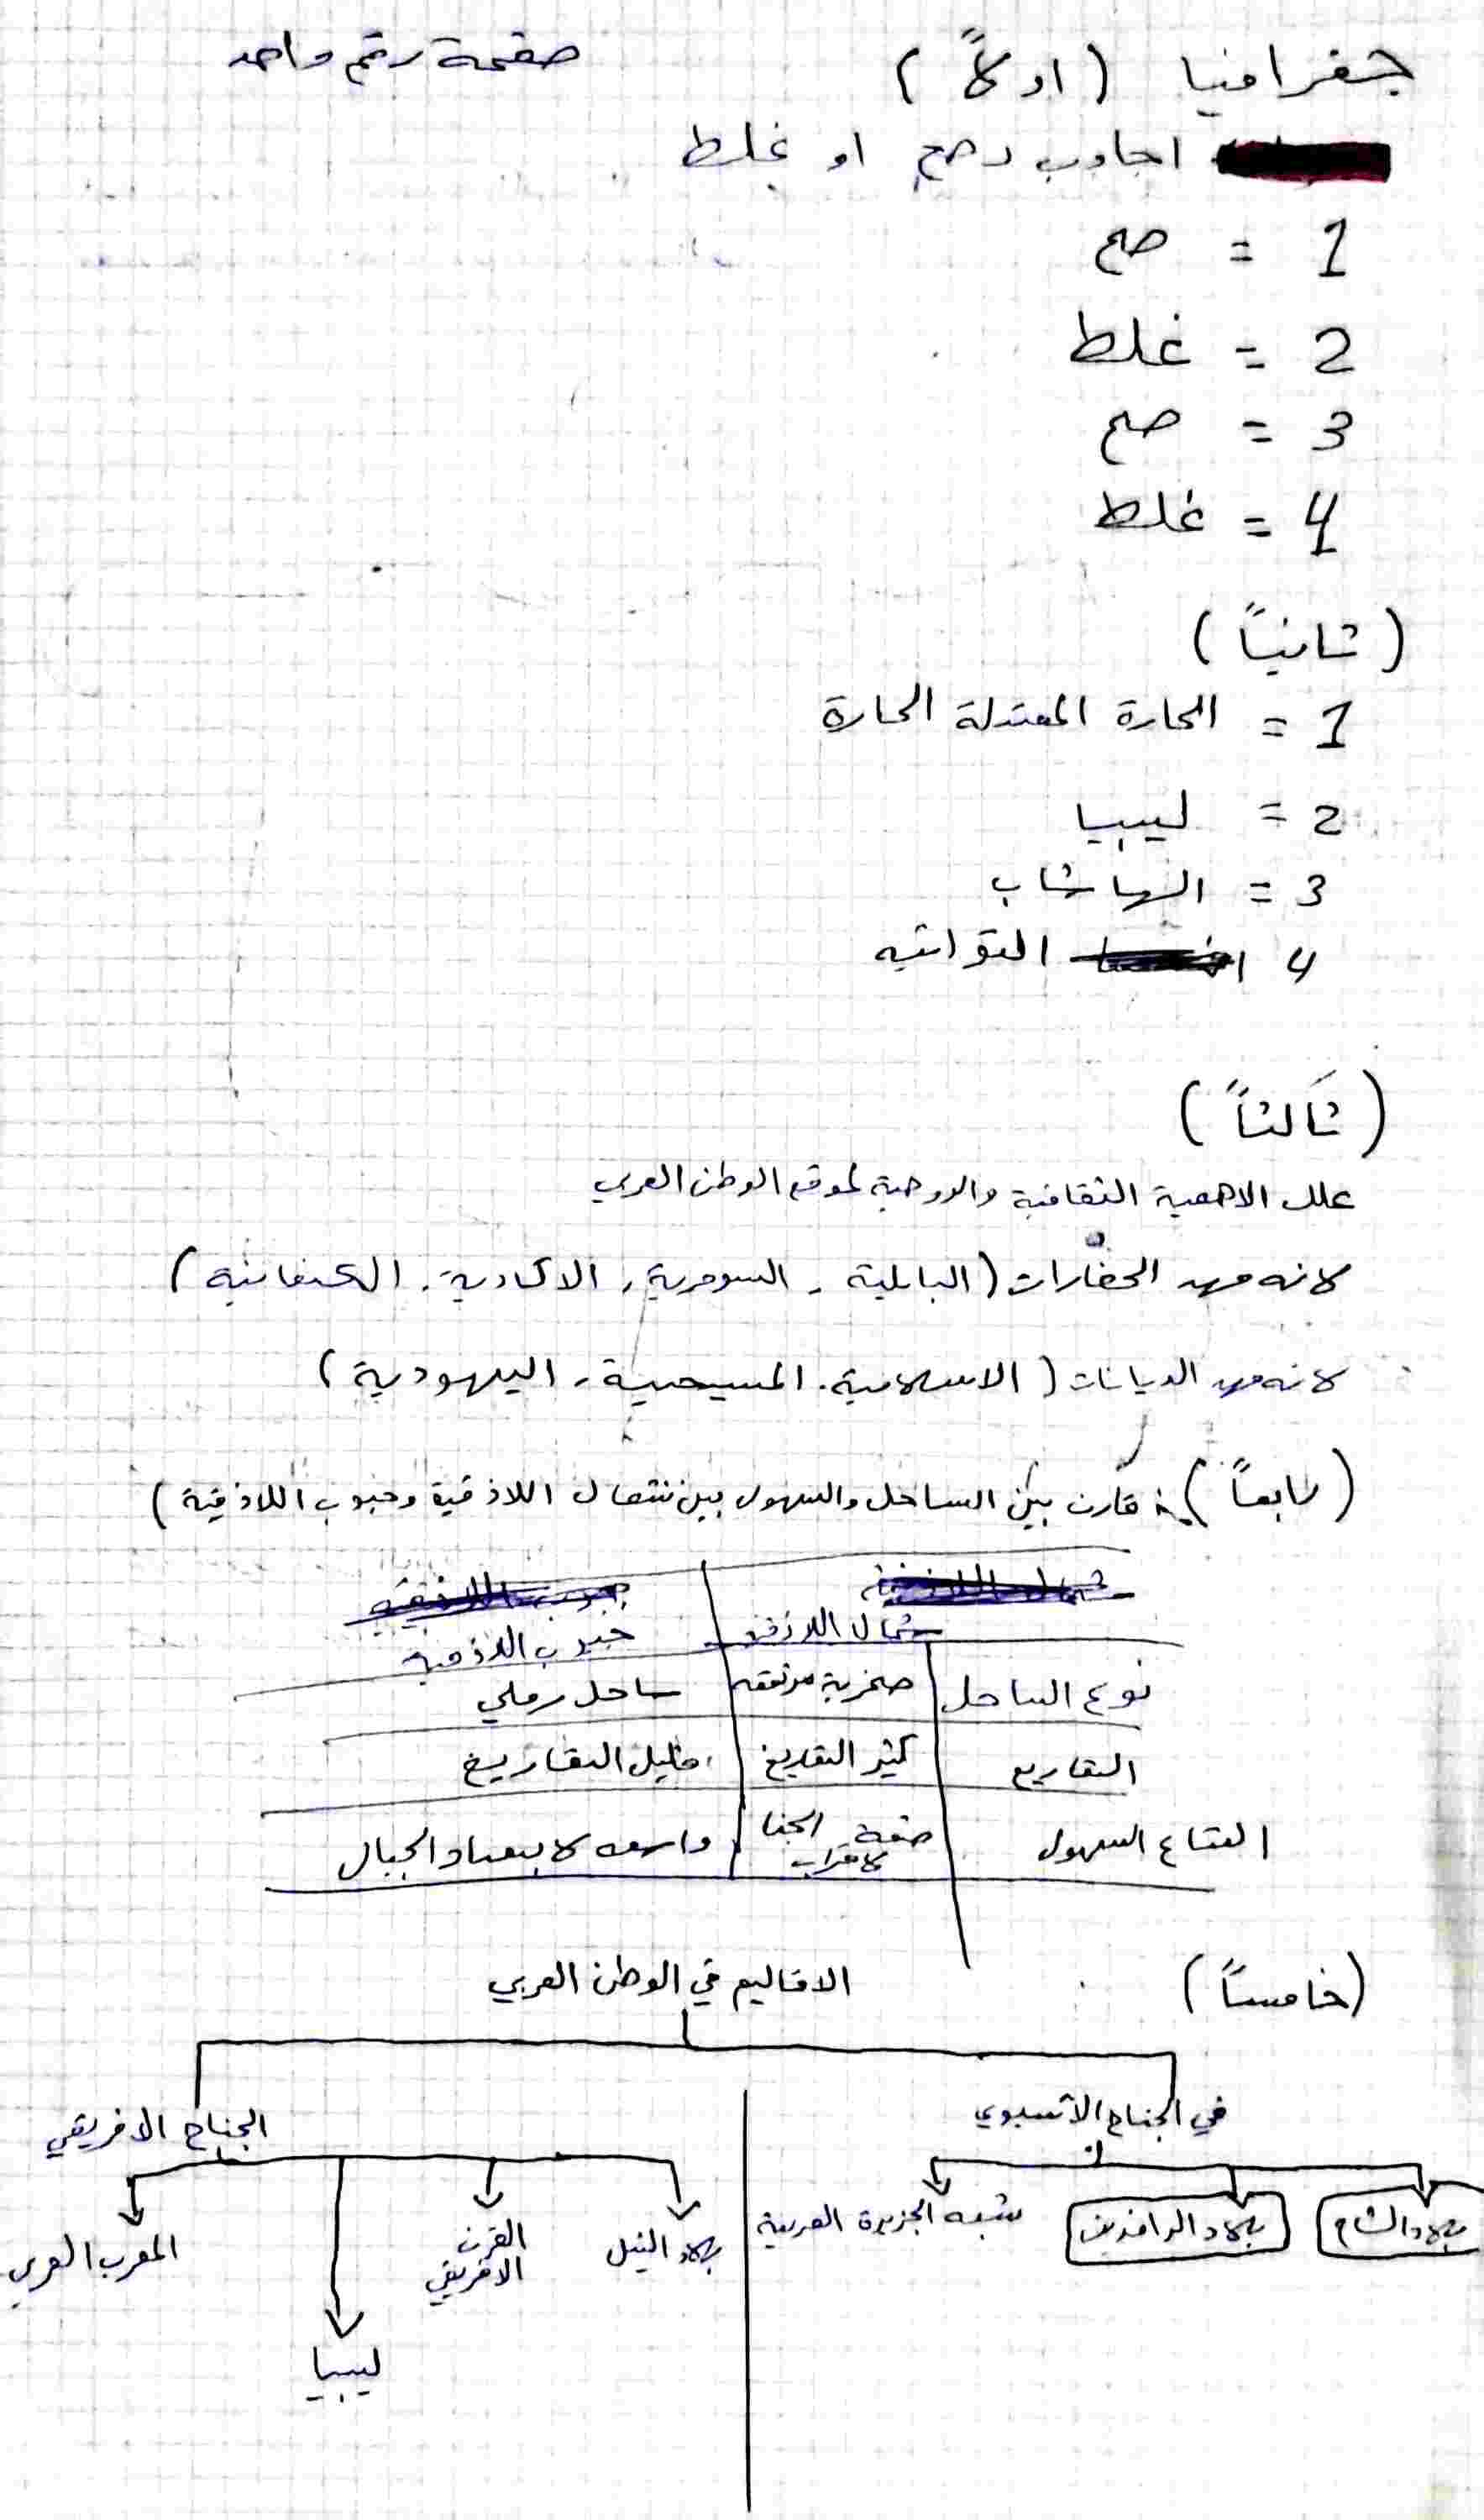 جغرافيا (اولاً)
صفحة رقم واحد
اجاوب بصح او غلط
1 = صح
2 = غلط
3 = صح
4 = غلط
(ثانياً)
1 = الحارة المعتدلة الحارة
2 = ليبيا
3 = الهاشاب
4 التوانتيه
(ثَالثاً)
علل الاهمية الثقافية والروحية لموقع الوطن العربي
لانه مهد الحضارات (البابلية - السومرية، الاكادية، الكنعانية)
لانه مهد الديانات (الاسلامية. المسيحية، اليهودية)
(رابعاً) قارن بين الساحل والسهول بين شمال اللاذقية وجنوب اللاذقية)
شمال اللاذقية جنوب اللاذقية
نوع الساحل صخرية مرتفعه ساحل رملي
التعاريج كثير التعاريج قليل التعاريج
اتساع السهول واسعه لابتعاد الجبال
(خامساً) الاقاليم في الوطن العربي
في الجناح الآسيوي الجناح الافريقي
بلاد الشام بلاد الرافدين شبه الجزيرة العربية بلاد النيل القرن الافريقي المغرب العربي
ليبيا